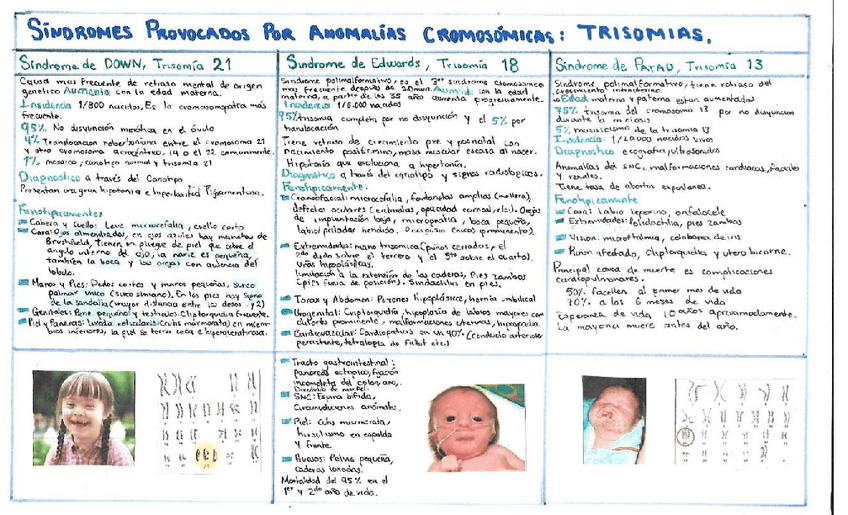 SÍNDROMES PROVOCADOS POR ANOMALÍAS CROMOSÓMICAS: TRISOMIAS.
Síndrome de DOWN, Trisomía 21
Causa mas frecuente de retraso mental de origen
genetico Aumenta con la edad materna.
Insidencia 1/800 nacidos, Es la cromosomopatia más
frecuente.
95% No disyunción meiótica en el óvulo
4% Translocacion robertsoniana entre el cromosoma 21
y otro cromosoma acrocéntrico, 14 o el 22 comunmente.
1% mosaico, cariotipo normal y trisomia 21
Diagnostico a través del Cariotipo
Presentan una gran hipotonia e hiperlaxitud ligamentosa.
Fenotipicamentes
Cabeza y Cuello: Leve microcefalia, cuello corto
Cara: Ojos almendrados, en ojos azules hay manchas de
Brushfield, tienen un pliegue de piel que cubre el
angulo interno del ojo, la nariz es pequeña,
también la boca y las orejas con ausencia del
lobulo.
Manos y Pies: Dedos cortos y manos pequeñas, surco
palmar unico (surco simiano). En los pies hay signo
de la sandalia (mayor distancia entre los dedos 1 y 2)
Genitales: Pene pequeño y testiculos. Cliptorquidia frecuente.
Piel y Faneras: Livedo reticularis (cutis mármorata) en miem-
bros inferiores, la piel se torna seca e hiperqueratosica.
Sindrome de Edwards, Trisomía 18
Sindrome polimalformativo, es el 3er sindrome cromosomico
muy frecuente después de Down. Aumenta con la edad
materna, a partir de los 35 años aumenta progresivamente.
Insidencia 1/6.000 nacidos
95% trisomia completa por no disyunción y el 5% por
translocación
Tiene retraso de crecimiento pre y posnatal con
nacimiento postérmino, masa muscular escasa al nacer.
Hipotonia que evoluciona a hipertonía.
Diagnostico a través del cariotipo y signos radiologicos.
Fenotipicamente.
Craneofacial: microcefalia, fontanelas amplias (mollera),
defectos oculares (cataratas, opacidad corneal, etc). Orejas
de implantación baja, micrognatia, boca pequeña,
labio/paladar hendido. Occipucio (nuca) (prominente).
Extremidades: mano trisomica (puños cerrados, el
2do dedo sobre el tercero y el 5to sobre el cuarto).
Uñas hipoplásticas,
limitación a la extension de las caderas, Pies zambos
(pies fuera de posición). Sindactilias en pies.
Torax y Abdomen: Pezones hipoplásicos, hernia umbilical
Urogenital: Criptorquidia, hipoplasia de labios mayores con
clitoris prominente, malformaciones uterinas, hipospadias.
Cardiovascular: Cardiopatias en un 90% (conducto arterioso
persistente, tetralogia de Fallot etc.)
Síndrome de PATAU, Trisomia 13
Síndrome polimalformativo, tiene retraso del
crecimiento intrauterino.
Edad materna y paterna estan aumentadas
75% trisomia del cromosoma 13 por no disyuncion
durante la meiosis
5% mosaicismo de la trisomia 13
Insidencia: 1/20.000 nacidos vivos
Diagnostico ecografia, ultrasonidos
Anomalías del SNC, malformaciones cardiacas, faciales
y renales.
Tiene tasa de abortos espontanea.
Fenotipicamente
Cara: Labio leporino, onfalocele
Extremidades: Polidactilia, pies zambos
Vision: microftalmia, coloboma de iris
Riñon afectado, Cliptorquidia y utero bicorne.
Principal causa de muerte es complicaciones
cardiopulmonares.
50% fasellan al primer mes de vida
70% a los 6 meses de vida
Esperanza de vida 10 años aproximadamente.
La mayoria muere antes del año.
Tracto gastrointestinal:
pancreas ectopico, fijación
incompleta del colon, ano,
SNC: Espina bifida,
Circunvoluciones anómalas.
Piel: Cutis marmorata,
hirsutismo en espalda
y frente.
Huesos: Pelvis pequeña,
caderas luxadas.
Mortalidad del 95% en el
1er y 2do año de vida.